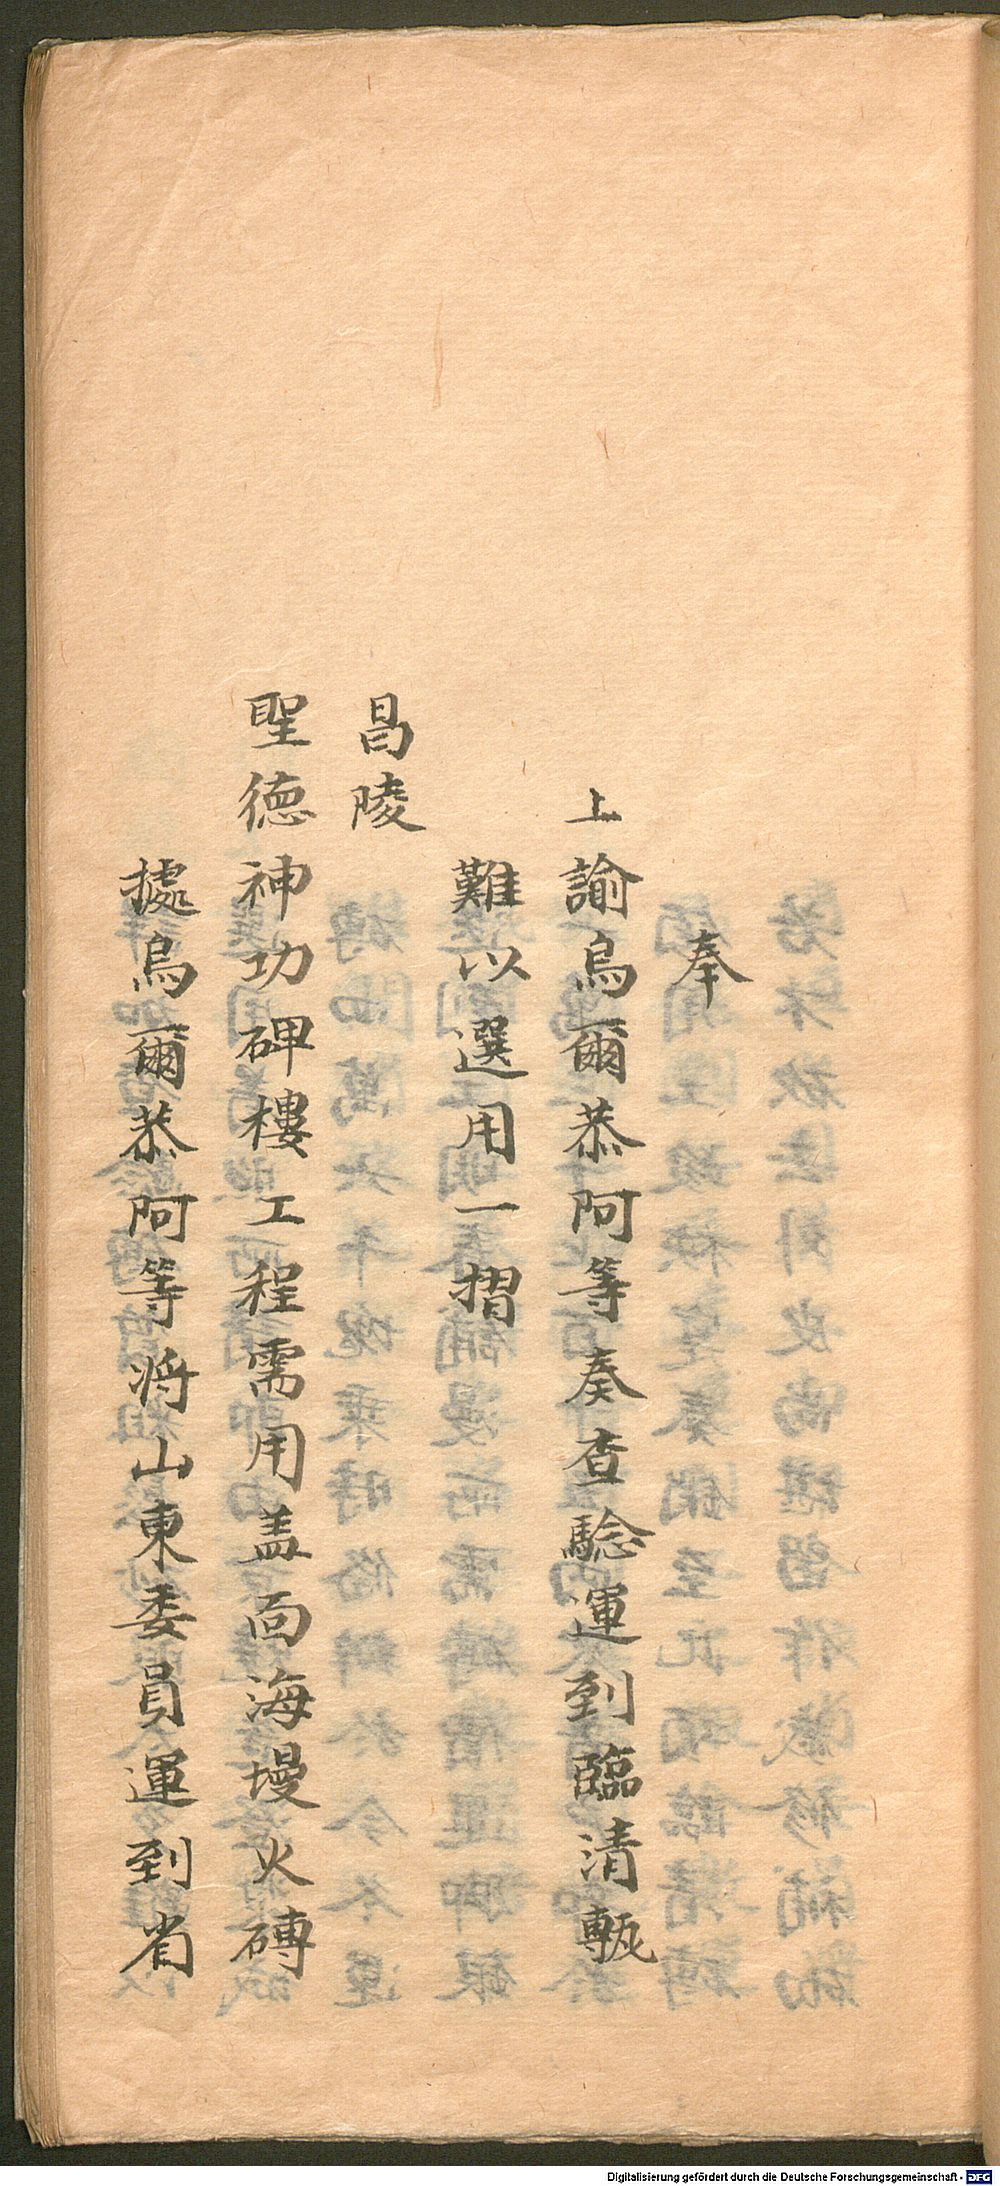 奉
上諭烏爾恭阿等奏查騐運到臨清甎
難以選用一摺
昌陵
聖德神功碑樓工程需用盖面海墁火磚
據烏爾恭阿等将山東委員運到省
Digitalisierung gefördert durch die Deutsche Forschungsgemeinschaft - DFG